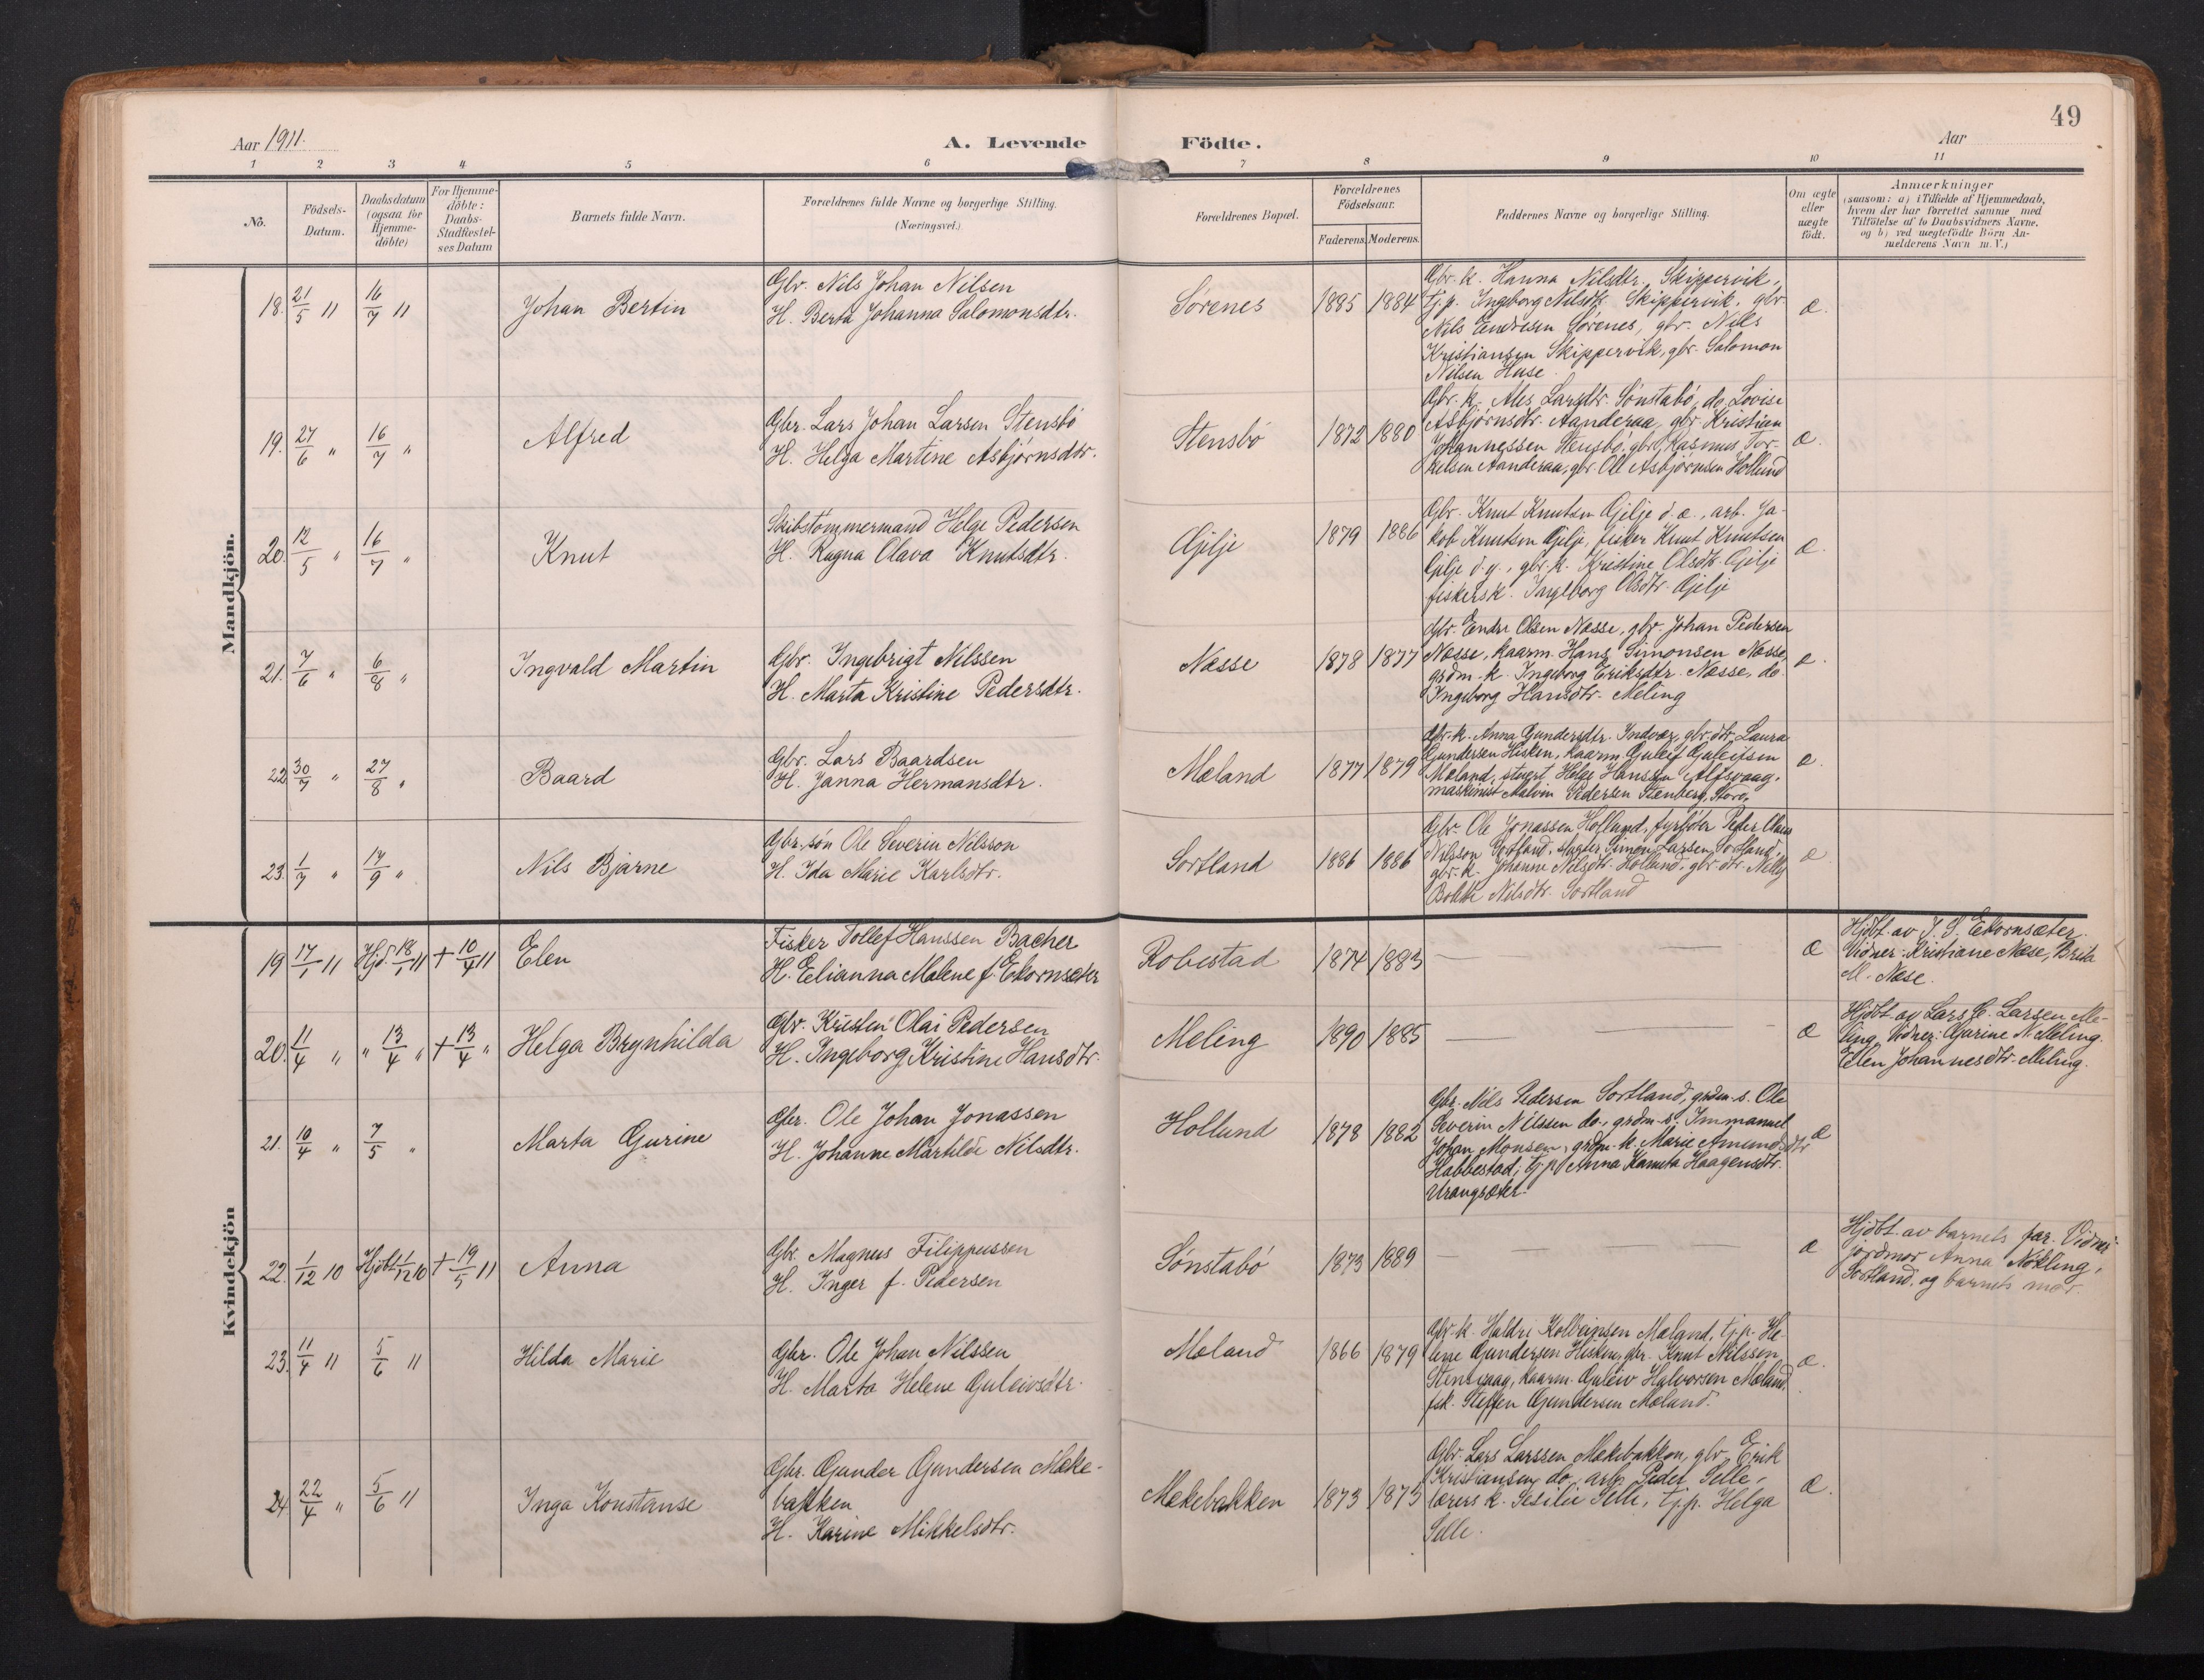 49
Aar 1911.
A. Levende Födte.
Aar
1 2 3 4 5 6 7 8 9 10 11
No.
Födsels-
Datum.
Daabsdatum
(ogsaa for
Hjemme-
döbte)
For Hjemme-
döbte:
Daabs-
Stadfæstel-
ses Datum
Barnets fulde Navn.
Forældrenes fulde Navne og borgerlige Stilling.
(Næringsvei.)
Forældrenes Bopæl.
Forældrenes
Födselsaar.
Faderens. Moderens.
Faddernes Navne og borgerlig Stilling.
Om ægte
eller
uægte
födt.
Anmærkninger
(saasom: a) i Tilfælde af Hjemmedaab,
hvem der har forrettet samme med
Tilföielse af to Daabsvidners Navne.
og b) ved uægtefödte Börn An-
melderens Navn m. V.)
Mandkjön.
18. 21/5 11 16/7 11 Johan Bertin
Gbr. Nils Johan Nilsen
H. Berta Johanna Salomonsdtr.
Sørenes 1885 1884
Gbr. k. Hanna Nilsdtr. Skippervik,
tj.p. Ingeborg Nilsdtr. Skippervik, gbr.
Nils Endresen Sørenes, gbr. Nils
Kristiansen Skippervik, gbr. Salomon
Nilsen Huse.
æ.
19. 27/6 " 16/7 " Alfred
Gbr. Lars Johan Larsen Stensbö
H. Helga Martine Asbjørnsdtr.
Stensbö 1872 1880
Gbr. k. Ales Larsdtr. Sönstabö, do. Lovise
Asbjørnsdtr. Aanderaa, gbr. Kristian
Johannessen Stensbö, gbr. Rasmus Tor-
kelsen Aanderaa, gbr. Ole Asbjørnsen Hollund
æ.
20. 12/5 " 16/7 " Knut
Skibstömmermand Helge Pedersen
H. Ragna Olava Knutsdtr.
Gjilje 1879 1886
Gbr. Knut Knutsen Gjilje d.æ., arb. Ja-
kob Knutsen Gjilje, fisker Knut Knutsen
Gjilje d.y., gbr. k. Kristine Olsdtr. Gjilje
fiskersk. Ingeborg Olsdtr. Gjilje
æ.
21. 7/6 " 6/8 " Ingvald Martin
Gbr. Ingebrigt Nilssen
H. Marta Kristine Pedersdtr.
Næsse 1878 1877
Gbr. Endre Olsen Næsse, gbr. Johan Pedersen
Næsse, kaarm. Hans Simonsen Næsse,
grdm. k. Ingeborg Eriksdtr. Næsse, do.
Ingeborg Hansdtr. Meling
æ.
22 30/7 " 27/8 " Baard
Gbr. Lars Baardsen
H. Janna Hermansdtr.
Mæland 1877 1879
Gbr. k. Anna Gundersdtr. Indvær, gbr. dtr. Laura
Gundersen Hisken, kaarm. Guleif Guleifsen
Mæland, stuert Helge Hanssen Alfsvaag,
maskinist Malvin Pedersen Stenberg, Storö.
æ.
23. 1/7 " 17/9 " Nils Bjarne
Gbr. sön Ole Severin Nilsson
H. Ida Marie Karlsdtr.
Sortland 1886 1886
Gbr. Ole Jonassen Hollund, fyrböter Peder Claus
Nilsson Sortland, slagter Simon Larsen Sortland,
gbr. k. Johanne Nilsdtr. Hollund, gbr. dtr. Nelly
Bolette Nilsdtr. Sortland
æ
Kvindekjön
19 17/1 11 Hjd. 18/1 11 + 10/4 11 Elen
Fisker Tollef Hanssen Bacher
H. Elianna Malene f. Ekornsæter
Robestad 1874 1883
æ
Hjdbt. av J. S. Ekornsæter.
Vidner: Kristiane Næse, Brita
M. Næse.
20. 11/4 " " 13/4 " + 13/4 " Helga Brynhilda
Gbr. Kristen Olai Pedersen
H. Ingeborg Kristine Hansdtr.
Meling 1890 1885
æ
Hjdbt. av Lars C. Larsen Me-
ling. Vidner: Gjarine N. Meling.
Elen Johannesdtr. Meling.
21. 10/4 " 7/5 " Marta Gurine
Gbr. Ole Johan Jonassen
H. Johanne Martilde Nilsdtr.
Hollund 1878 1882
Gbr. Nils Pedersen Sortland, grdm. s. Ole
Severin Nilssen do., grdm. s. Immanuel
Johan Monsen, grdm. k. Marie Amundsdtr.
Habbestad, tj.p. Anna Kamita Haagensdtr.
Urangsæter.
æ
22. 1/12 10 Hjdbt 1/12 10 + 19/5 11 Anna
Gbr. Magnus Filippussen
H. Inger f. Pedersen
Sönstabö 1873 1889
æ
Hjdbt. av barnets far. Vidner:
jordmor Anna Nökling,
Sortland, og barnets mor.
23. 11/4 11 5/6 11 Hilda Marie
Gbr. Ole Johan Nilssen
H. Marta Helene Guleivsdtr.
Mæland 1866 1879
Gbr. k. Haldri Kolbeinsen Mæland, tj.p. He-
lene Gundersen Hisken, gbr. Knut Nilssen
Stensvaag, kaarm. Guleiv Halvorsen Mæland,
fsk. Steffen Gundersen Mæland.
æ.
24. 22/4 " 5/6 11 Inga Konstanse
Gbr. Gunder Gundersen Mæke-
bakken
H. Karine Mikkelsdtr.
Mækebakken 1873 1873
Gbr. Lars Larssen Mækebakken, gbr. Erik
Kristiansen do., arb. Peder Selle,
lærers k. Sesilie Selle, tj.p. Helga
Selle.
æ.